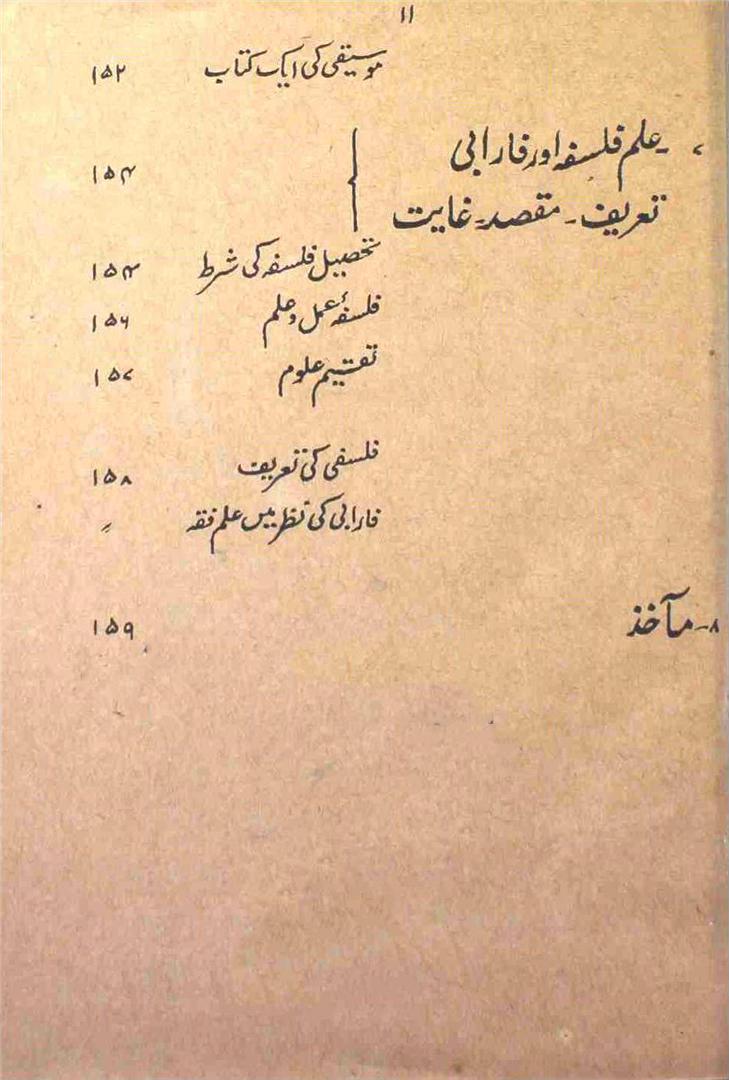 ۱۱
موسیقی کی ایک کتاب ۱۵۲
۷- علم فلسفہ اور فارابی
تعریف - مقصد - غایت } ۱۵۴
تحصیل فلسفہ کی شرط ۱۵۴
فلسفۂ عمل و علم ۱۵۶
تقسیم علوم ۱۵۷
فلسفی کی تعریف ۱۵۸
فارابی کی نظر میں علم فقہ 〃
۸- مآخذ ۱۵۹